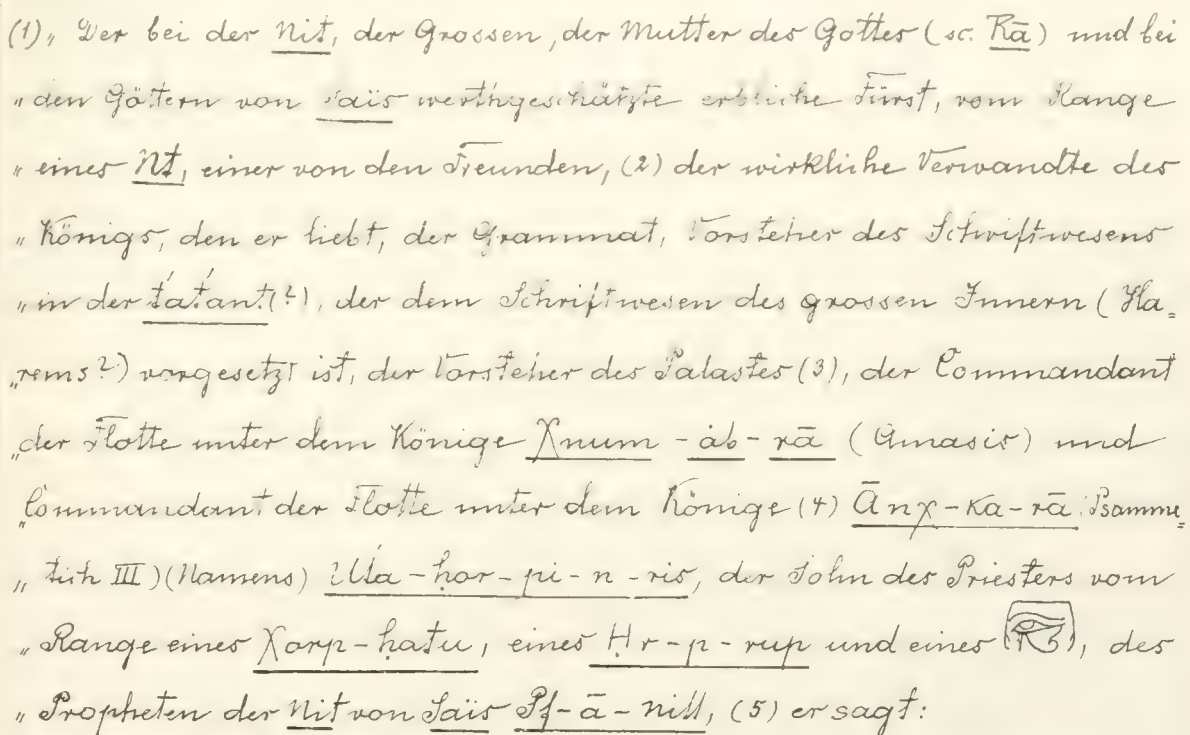 (1) „Der bei der Nit, der Grossen, der Mutter des Gottes (sc. Rā) und bei
„den Göttern von Saïs werthgeschätzte erbliche Fürst, vom Range
„eines Nt, einer von den Freunden, (2) der wirkliche Verwandte des
„Königs, den er liebt, der Grammat, Vorsteher des Schriftwesens
„in der t́at́ant (?), der dem Schriftwesen des grossen Innern (Ha=
„rems?) vorgesetzt ist, der Vorsteher des Palastes (3), der Commandant
„der Flotte unter dem Könige Χnum-ȧb-rā (Amasis) und
„Commandant der Flotte unter dem Könige (4) Ānχ-ka-rā (Psamme=
„tich III) (Namens) Uťa-ḥor-pi-n-ris, der Sohn des Priesters vom
„Range eines Χorp-hatu, eines Ḥr-p-rup und eines, des
„Propheten der Nit von Saïs Pf-ā-nitt, (5) er sagt: